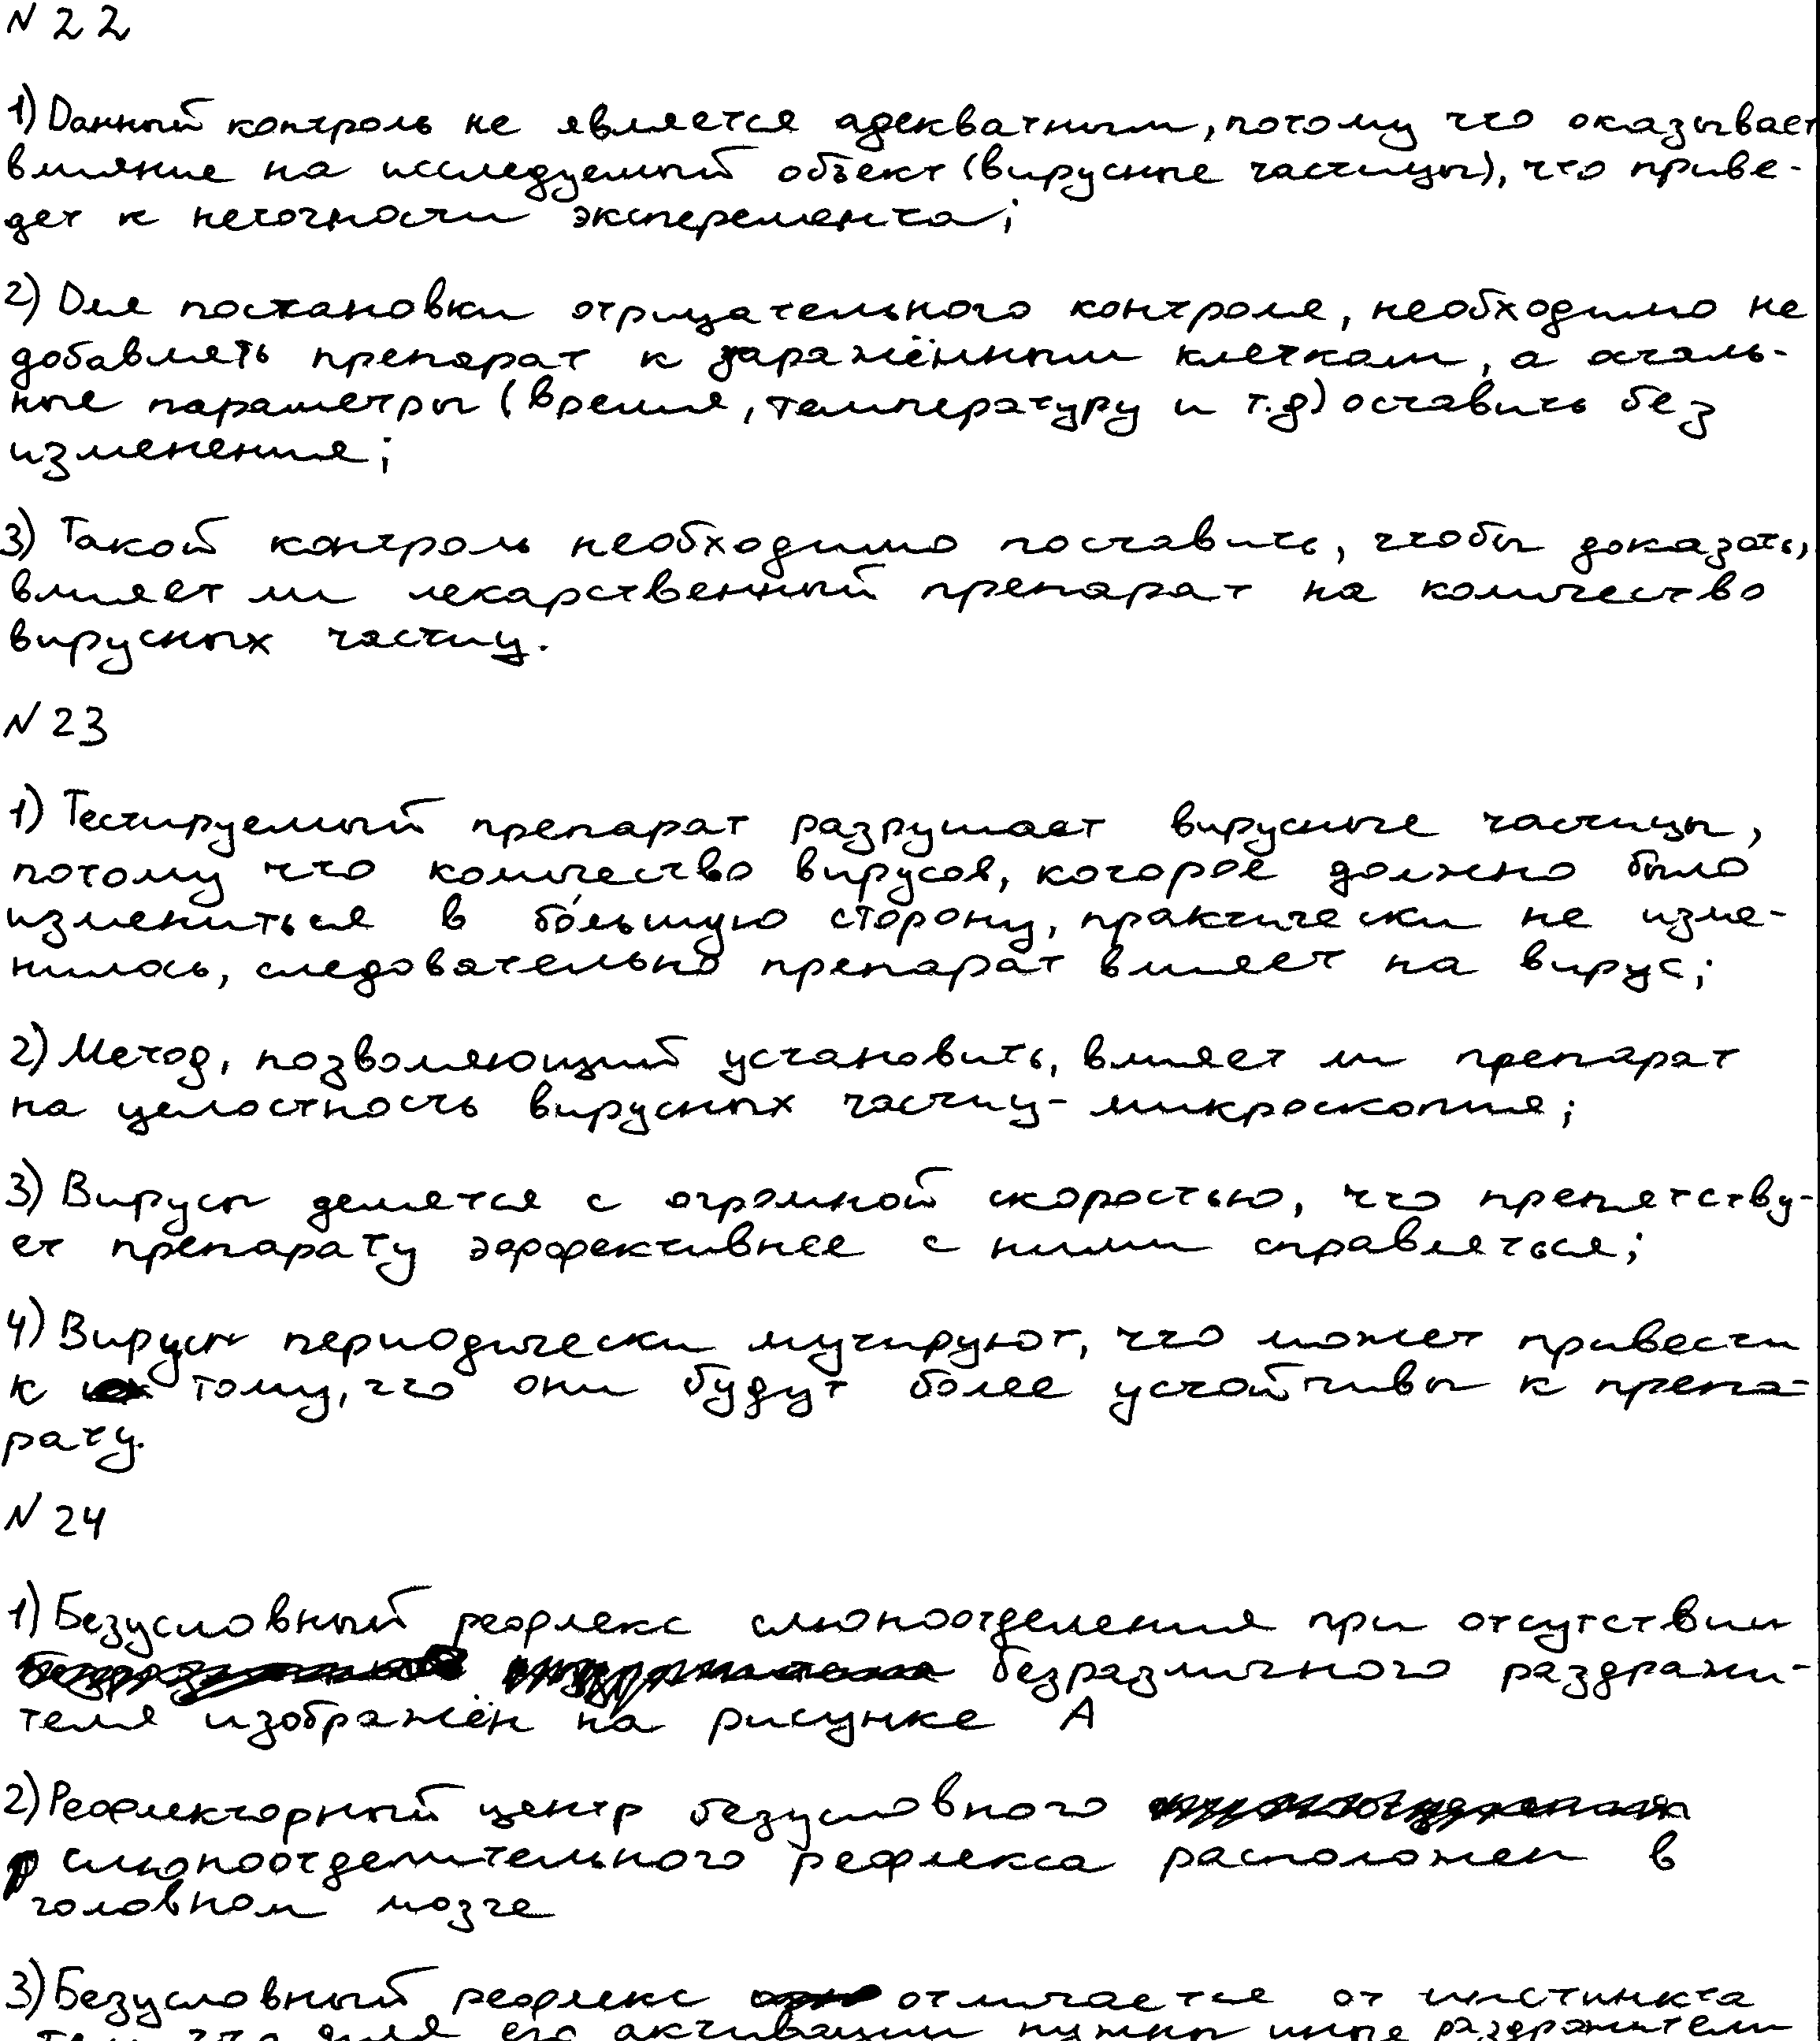 N 22
1) Данный контроль не является адекватным, потому что оказывает
влияние на исследуемый объект (вирусные частицы), что приве-
дет к неточности эксперемента;
2) Для постановки отрицательного контроля, необходимо не
добавлять препарат к заражённым клеткам, а осталь-
ные параметры (время, температуру и т.д) оставить без
изменения;
3) Такой контроль необходимо поставить, чтобы доказать,
влияет ли лекарственный препарат на количество
вирусных частиц.
N 23
1) Тестируемый препарат разрушает вирусные частицы,
потому что количество вирусов, которое должно было
измениться в бо́льшую сторону, практически не изме-
нилось, следовательно препарат влияет на вирус;
2) Метод, позволяющий установить, влияет ли препарат
на целостность вирусных частиц - микроскопия;
3) Вирусы делятся с огромной скоростью, что препятству-
ет препарату эффективнее с ними справляться;
4) Вирусы периодически мутируют, что может привести
к тому, что они будут более устойчивы к препа-
рату.
N 24
1) Безусловный рефлекс слюноотделения при отсутствии
безразличного раздражи-
теля изображён на рисунке А
2) Рефлекторный центр безусловного
слюноотделительного рефлекса расположен в
головном мозге
3) Безусловный рефлекс отличается от инстинкта
тем, что для его активации нужны иные раздражители